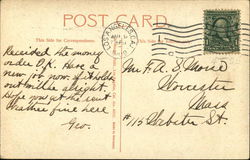 POST CARD
This Side for Correspondence.
This Side is for the Address
LOS ANGELES, CAL.
Received the money
order O.K. Have a
new job now. if it holds
out will be alright.
Hope you get the rent
Geo.
Mr F. A. S.
Worcester
Mass
#115 Webster St.